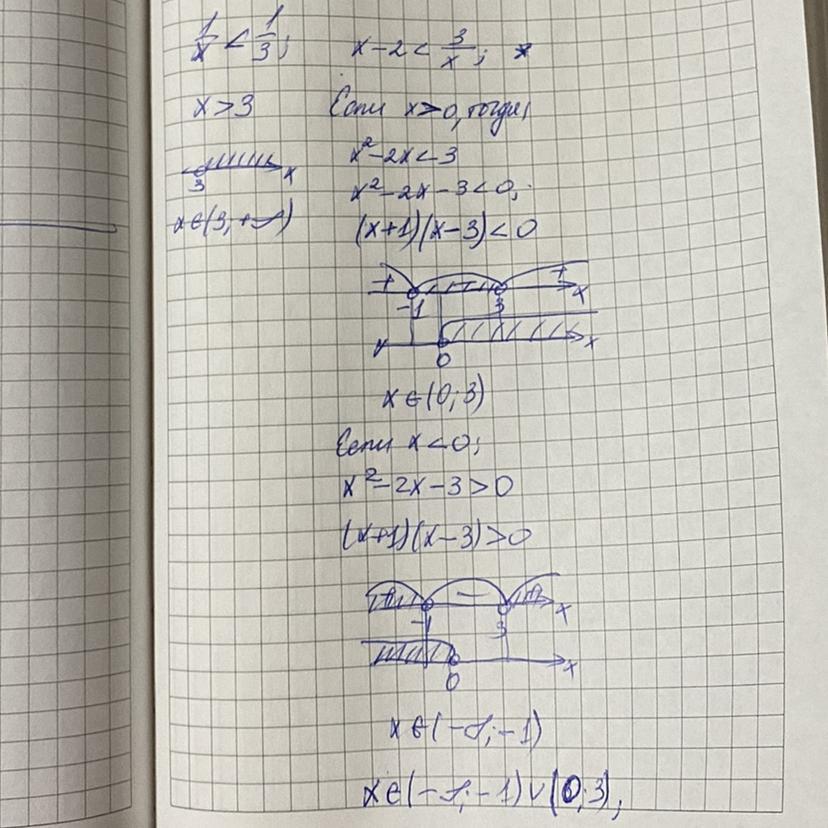 1/x < 1/3;
x > 3
3 x
x ∈ (3, +∞)
x − 2 < 3/x;
Если x > 0, тогда,
x² − 2x < 3
x² − 2x − 3 < 0;
(x+1)(x−3) < 0
+ + x
−1 3
0 x
x ∈ (0; 3)
Если x < 0;
x² − 2x − 3 > 0
(x+1)(x−3) > 0
+ − + x
−1 3
0 x
x ∈ (−∞; −1)
x ∈ (−∞; −1) ∪ (0; 3),